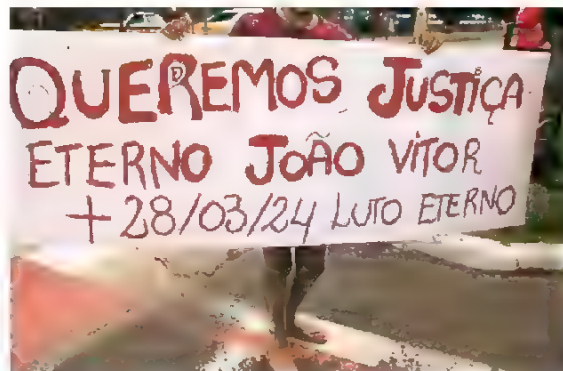 QUEREMOS JUSTIÇA
ETERNO JOÃO VITOR
+ 28/03/24 LUTO ETERNO